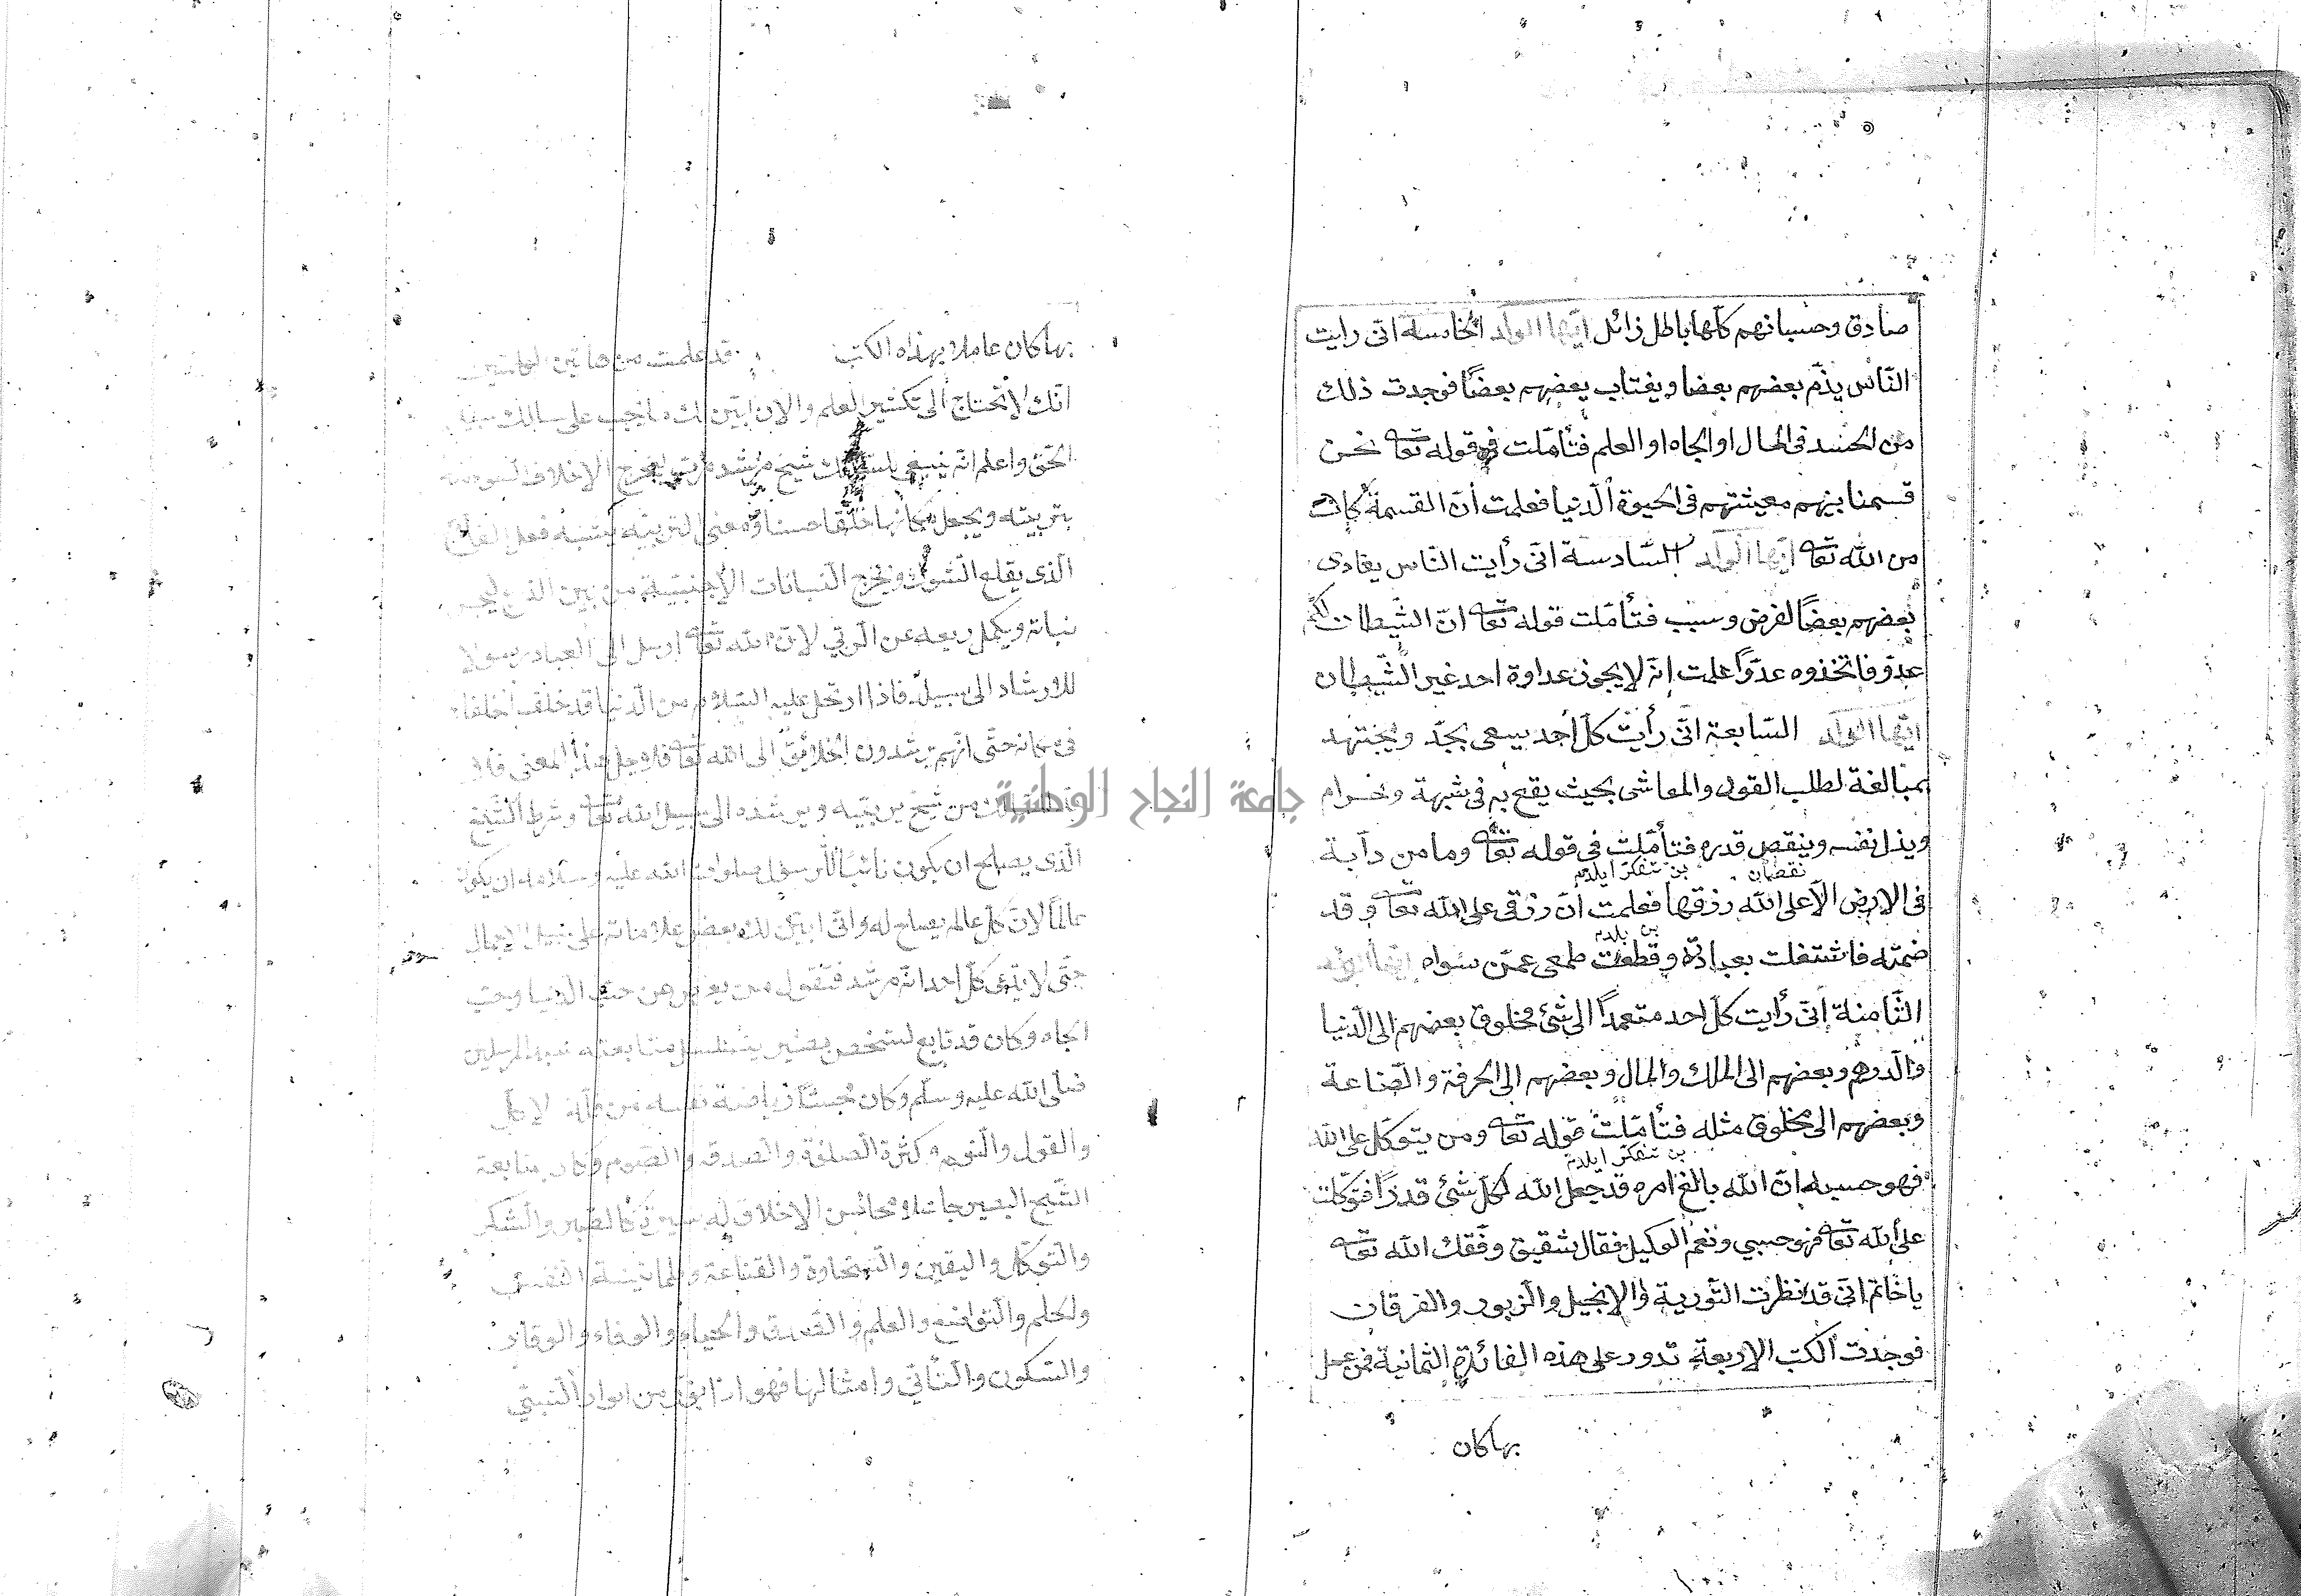 صادق وحسبانهم كلها باطل زائل ايها الولد الخامسة انى رايت
الناس يذم بعضهم بعضا ويغتاب بعضهم بعضا فوجدت ذلك
من الحسد فى المال او الجاه او العلم فتأملت فى قوله تعا نحن
قسمنا بينهم معيشتهم فى الحيوة الدنيا فعلمت أن القسمة كان
من الله تعا ايها الولد السادسة انى رأيت الناس يعادى
بعضهم بعضا لغرض وسبب فتأملت قوله تعا ان الشيطان لكم
عدو فاتخذوه عدوا علمت انه لا يجوز عداوة احد غير الشيطان
ايها الولد السابعة انى رأيت كل أحد يسعى بجد ويجتهد
بمبالغة لطلب القوت والمعاش بحيث يقع به فى شبهة وحرام
ويذل نفسه وينقص قدره فتأملت فى قوله تعا وما من دآبة
نقصان بن تفكر ايلدم
فى الارض الا على الله رزقها فعلمت أن رزقى على الله تعا وقد
بن بلدم
ضمنه فاشتغلت بعبادته وقطعت طمعى عمن سواه ايها الولد
الثامنة انى رأيت كل احد متعمدا الى شئ مخلوق بعضهم الى الدنيا
والدرهم وبعضهم الى الملك والمال وبعضهم الى الحرفة والصناعة
وبعضهم الى مخلوق مثله فتأملت قوله تعا ومن يتوكل على الله
بن تفكر ايلدم
فهو حسبه ان الله بالغ امره قد جعل الله لكل شئ قدرا فتوكلت
على الله تعا فهو حسبي ونعم الوكيل فقال شقيق وفقك الله تعا
يا حاتم انى قد نظرت التورية والانجيل والزبور والفرقان
فوجدت الكتب الاربعة تدور على هذه الفائدة الثمانية فمن عمل
بها كان
بها كان عاملا بهذه الكتب قد علمت من هاتين
انك لا تحتاج الى تكثير العلم والان ابين لك ما يجب على سالك سبيل
الحق واعلم انه ينبغى للسالك شيخ مرشد مرب ليخرج الاخلاق السوء منه
بتربيته ويجعل مكانها خلقا حسنا ومعنى التربية يشبه فعل الفلاح
الذى يقلع الشوك ويخرج النباتات الأجنبية من بين الزرع ليحسن
نباته ويكمل ريعه لان الله تعا ارسل الى العباد رسولا
للارشاد الى سبيله فاذا ارتحل عليه السلام من الدنيا قد خلف الخلفاء
فى مكانه حتى انهم يرشدون الخلائق الى الله تعا فلاجل هذا المعنى
للسالك من شيخ يربيه ويرشده الى سبيل الله تعا وشرط الشيخ
الذى يصلح ان يكون نائبا للرسول صلوات الله عليه وسلامه ان يكون
عالما لان كل عالم يصلح له وانى ابين لك بعض علاماته على سبيل الاجمال
حتى لا يدعى كل احد انه مرشد فنقول من يعرض عن حب الدنيا وحب
الجاه وكان قد تابع لشخص بصير يتسلسل متابعته سيد المرسلين
صلى الله عليه وسلم وكان محسنا رياضة نفسه من قلة الاكل
والقول والنوم وكثرة الصلوة والصدقة والصوم وكان بمتابعة
الشيخ البصير جاعلا محاسن الاخلاق له سيرة كالصبر والشكر
والتوكل واليقين والسخاوة والقناعة وطمانينة النفس
والحلم والتواضع والعلم والصدق والحياء والوفاء والوقار
والسكون والتأني وامثالها فهو اذا نور من انوار النبي
جامعة النجاح الوطنية